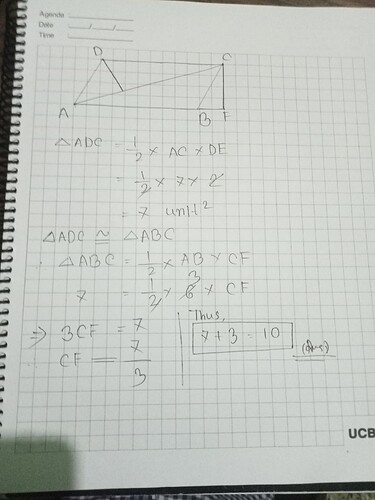 Agenda
Date / /
Time
D
C
A
B
F
△ADC = 1/2 × AC × DE
= 1/2 × 7 × 2
= 7 unit²
△ADC ≅ △ABC
△ABC = 1/2 × AB × CF
7 = 1/2 × 6 3 × CF
⇒ 3CF = 7
CF = 7/3
Thus,
7 + 3 = 10
(Ans)
UCB